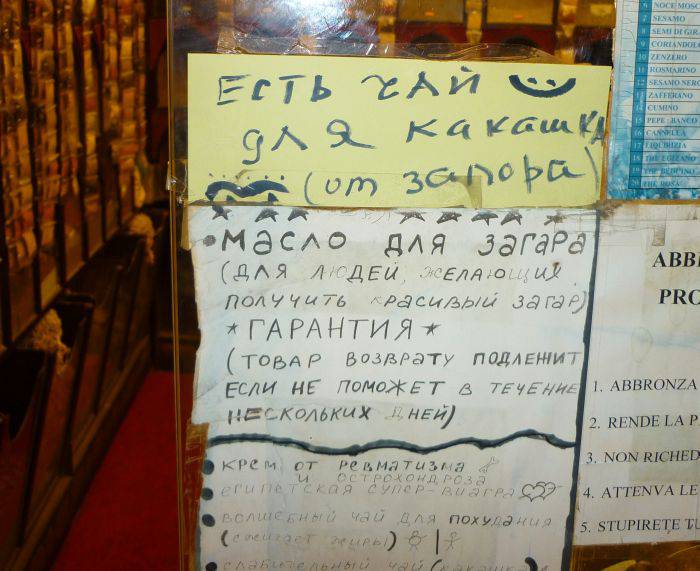 ЕСТЬ ЧАЙ
для какашка
(от запора)
• МАСЛО ДЛЯ ЗАГАРА
(ДЛЯ ЛЮДЕЙ, ЖЕЛАЮЩИХ
ПОЛУЧИТЬ КРАСИВЫЙ ЗАГАР)
* ГАРАНТИЯ *
(ТОВАР ВОЗВРАТУ ПОДЛЕЖИТ
ЕСЛИ НЕ ПОМОЖЕТ В ТЕЧЕНИЕ
НЕСКОЛЬКИХ ДНЕЙ)
• КРЕМ ОТ РЕВМАТИЗМА
И ОСТРОХОНДРОЗА
• ЕГИПЕТСКАЯ СУПЕР-ВИАГРА
• ВОЛШЕБНЫЙ ЧАЙ ДЛЯ ПОХУДАНИЯ
(СЖИГАЕТ ЖИРЫ)
• СЛАБИТЕЛЬНЫЙ ЧАЙ (КАКАШКА)
6 NOCE MOSC
7 SESAMO
8 SEMI DI GIR
9 CORIANDOL
10 ZENZERO
11 ROSMARINO
12 SESAMO NERO
13 ZAFFERANO
14 CUMINO
15 PEPE BANCO
16 CANNELLA
17 LIQUIRIZIA
18 THE EGIZIANO
THE BEDUINO
THE ROSA
ABB
PRO
1. ABBRONZA
2. RENDE LA P
3. NON RICHED
4. ATTENVA LE
5. STUPIRETE TU